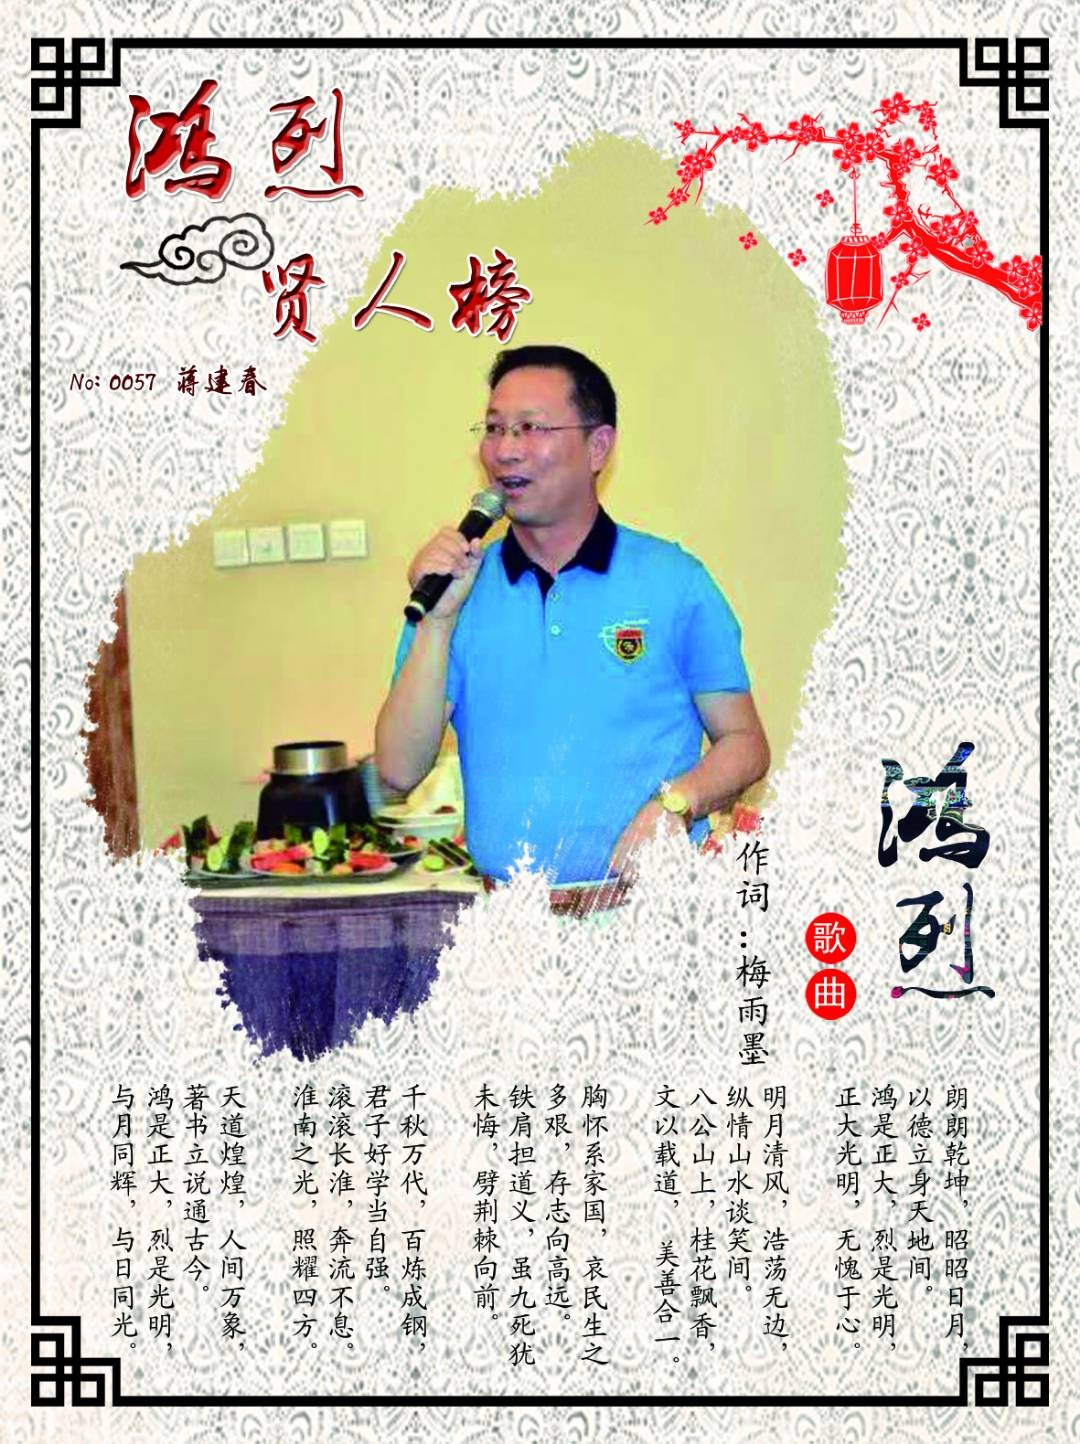 鸿烈
贤人榜
No: 0057 蒋建春
鸿烈
歌曲
作词：梅雨墨
朗朗乾坤，昭昭日月，
以德立身天地间。
鸿是正大，烈是光明，
正大光明，无愧于心。
明月清风，浩荡无边，
纵情山水谈笑间。
八公山上，桂花飘香，
文以载道，美善合一。
胸怀系家国，哀民生之
多艰，存志向高远。
铁肩担道义，虽九死犹
未悔，劈荆棘向前。
千秋万代，百炼成钢，
君子好学当自强。
滚滚长淮，奔流不息。
淮南之光，照耀四方。
天道煌煌，人间万象，
著书立说通古今。
鸿是正大，烈是光明，
与月同辉，与日同光。